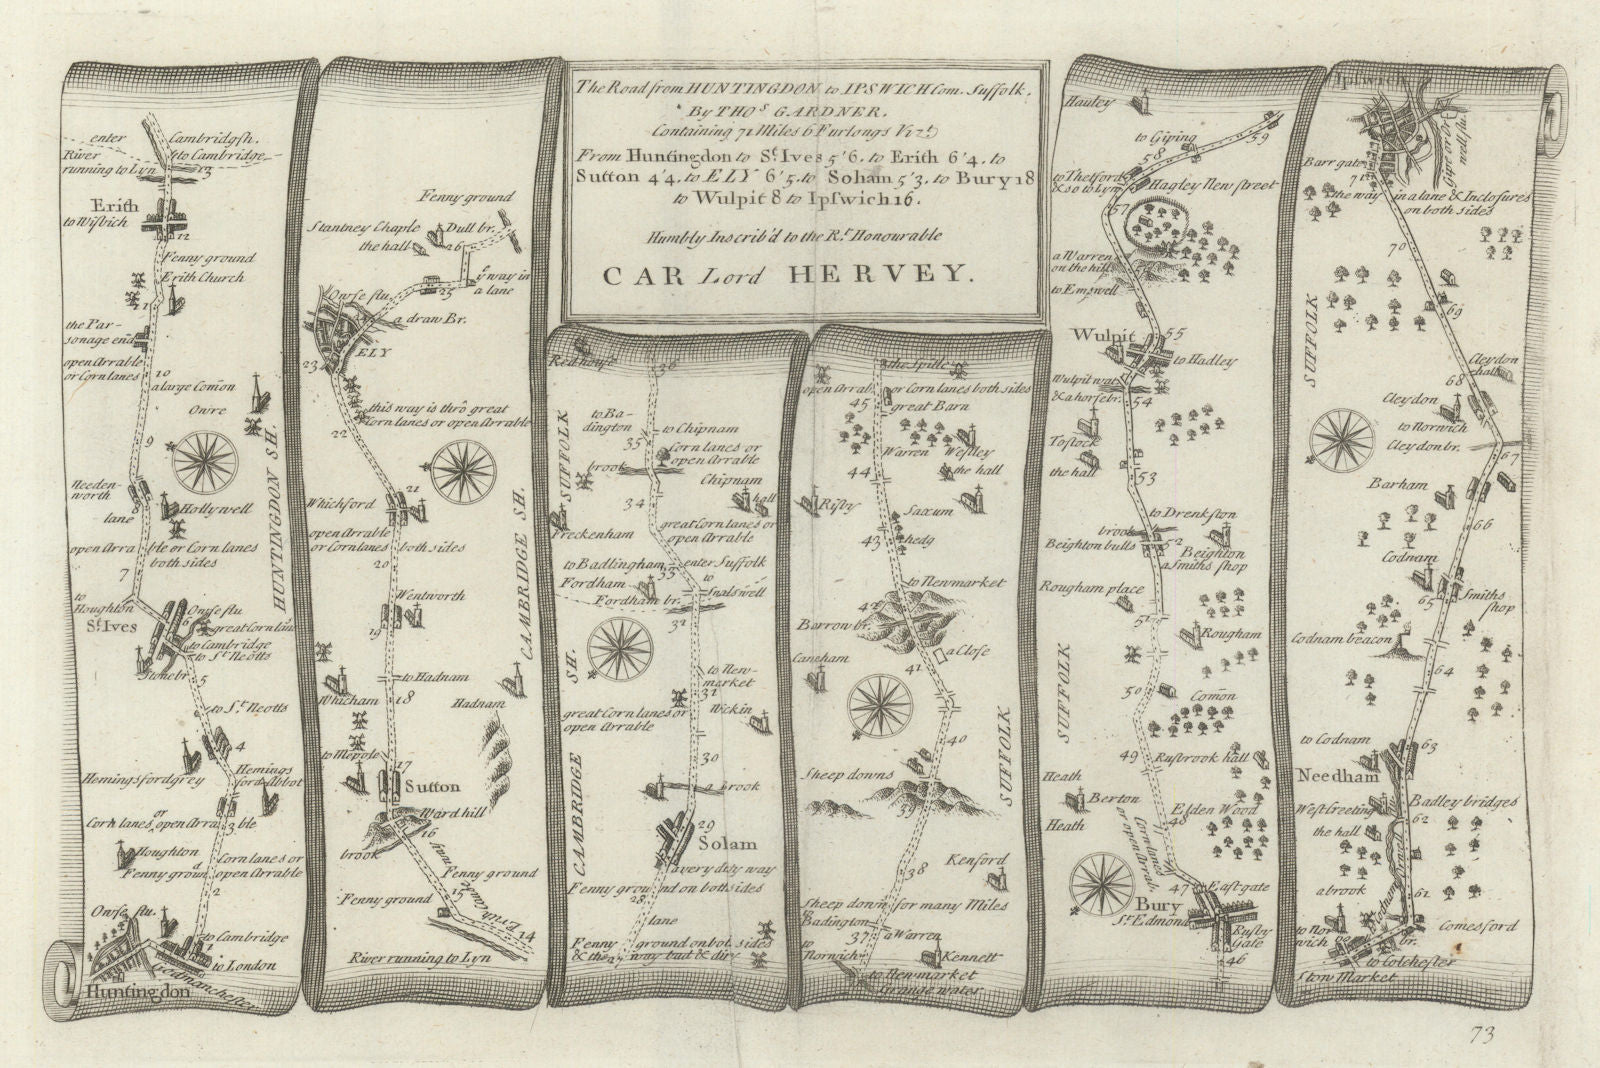 The Road from HUNTINGDON to IPSWICH Com. Suffolk.
By THOˢ GARDNER.
Containing 71 Miles 6 Furlongs Vizᵗ
From Huntingdon to Sᵗ Ives 5'6, to Erith 6'4, to
Sutton 4'4, to ELY 6'5, to Soham 5'3, to Bury 18
to Wulpit 8 to Ipswich 16.
Humbly Inscrib'd to the Rᵗ Honourable
CAR Lord HERVEY.
enter
River
running to Lyn
Cambridgsh.
to Cambridge
13
Erith
to Wisbich
12
Fenny ground
Erith Church
11
the Par-
sonage end
open Arrable
or Corn lanes
10
a large Comon
Owre
9
HUNTINGDON SH.
Needen-
worth
lane
Hollywell
open Arrable or Corn lanes
both sides
7
to
Houghton
Sᵗ Ives
Owse flu
6
great Corn lane
to Cambridge
to Sᵗ Neotts
Stone br.
5
to Sᵗ Neotts
4
Hemingsfordgrey
Hemings
ford Abbot
or
Corn lanes open Arrable
3
Houghton
Fenny ground
Corn lanes or
open Arrable
2
Owse flu.
to Cambridge
to London
Godmanchester
Huntingdon
Fenny ground
Stantney Chaple
the hall
Dull br.
26
yᵉ way in
a lane
25
Owse flu
a draw Br.
ELY
23
this way is thrõ great
Corn lanes or open Arrable
22
21
Whichford
open Arrable
or Corn lanes both sides
20
CAMBRIDGE SH.
Wentworth
19
to Hadnam
18
Whicham
Hadnam
to Mepole
17
Sutton
Ward hill
16
brook
Fenny ground
15
Fenny ground
Erith Causway
14
River running to Lyn
Redhouse
36
SUFFOLK
to Ba-
dington
35
to Chipnam
Corn lanes or
open Arrable
brook
Chipnam
hall
34
Freckenham
great Corn lanes or
open Arrable
to Badlingham
33
enter Suffolk
to
Snalswell
Fordham
Fordham br.
32
SH.
to New-
market
31
great Corn lanes or
open Arrable
Wickin
30
CAMBRIDGE
a brook
29
Solam
a very dirty way
Fenny ground on both sides
28
lane
Fenny ground on bot. sides
& the way bad & dirty
the Spittle
open Arrab. or Corn lanes both sides
45
great Barn
Warren
Westley
the hall
44
Risby
Saxum
43
hedg
to Newmarket
42
Barrow br.
a Close
41
Caneham
SUFFOLK
40
Sheep downs
39
38
Kenford
Sheep down for many Miles
Badington
37
a Warren
to
Norwich
Kennett
to Newmarket
Grange water
Hauley
to Giping
59
58
to Thetford
& so to Lyn
Hagley New street
57
a Warren
on the hills
to Empwell
Wulpit
55
to Hadley
Wulpit wat.
& a horse br.
54
Tostock
the hall
53
to Drenkston
brook
52
Beighton bulls
Beighton
a Smiths shop
Rougham place
51
Rougham
SUFFOLK
50
Comon
49
Rusbrook hall
Heath
Berton
Heath
Elden Wood
48
Corn land
or open Arrab.
47
Eastgate
Bury
Sᵗ Edmond
Risby
Gate
46
Ipswich
Barr gate
71
the way in a lane & Inclosures
on both sides
70
SUFFOLK
69
Cleydon
hall
68
Cleydon
to Norwich
Cleydon br.
67
Barham
66
Codnam
65
Smiths
shop
Codnam beacon
64
to Codnam
63
Needham
West Creeting
Badley bridges
62
the hall
a brook
61
to Nor
wich
br.
Comesford
to Colchester
Stow Market
73